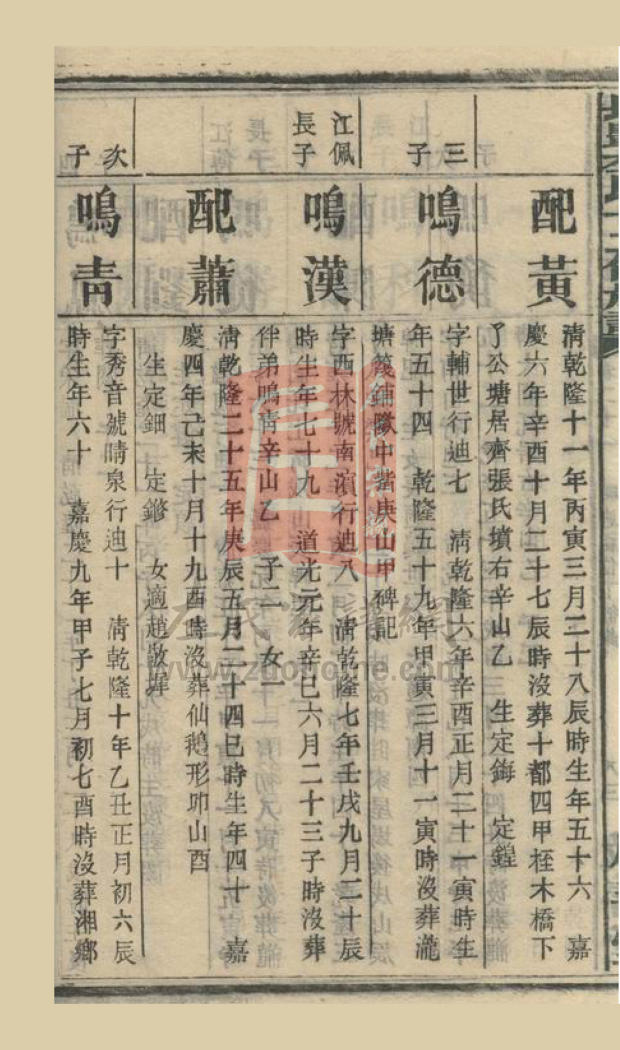 配黃
清乾隆十一年丙寅三月二十八辰時生年五十六　嘉
慶六年辛酉十月二十七辰時沒葬十都四甲桎木橋下
了公塘居齊張氏墳右辛山乙　生定鋂　定鍠
三子
鳴德
字輔世行迪七　清乾隆六年辛酉正月二十一寅時生
年五十四　乾隆五十九年甲寅三月十一寅時沒葬瀧
塘篾鋪隊中嘴庚山甲碑記
江佩長子
鳴漢
字西林號南濱行迪八　清乾隆七年壬戌九月二十辰
時生年七十九　道光元年辛巳六月二十三子時沒葬
伴弟鳴青辛山乙　子二　女一
配蕭
清乾隆二十五年庚辰五月二十四巳時生年四十　嘉
慶四年己未十月十九酉時沒葬仙鵝形卯山酉
生定鈿　定鏒　女適趙敬墀
次子
鳴青
字秀音號晴泉行迪十　清乾隆十年乙丑正月初六辰
時生年六十　嘉慶九年甲子七月初七酉時沒葬湘鄉
www.zuohome.com